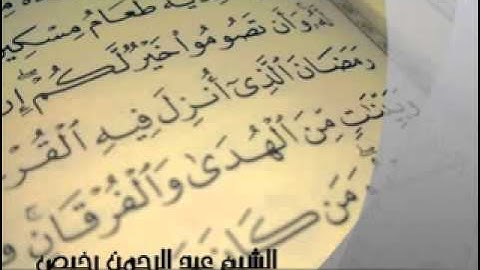 فِدْيَةٌ طَعَامُ مِسْكِينٍ
وَأَن تَصُومُوا۟ خَيْرٌ لَّكُمْ إِن
رَمَضَانَ ٱلَّذِىٓ أُنزِلَ فِيهِ ٱلْقُرْ
وَبَيِّنَـٰتٍ مِّنَ ٱلْهُدَىٰ وَٱلْفُرْقَانِ ۚ فَ
وَمَن كَانَ
الشيخ عبد الرحمن رخيص